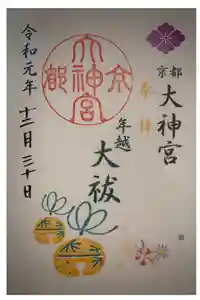 京都
大神宮
奉拝
年越
大祓
京都
大神宮
令和元年 十二月 三十日